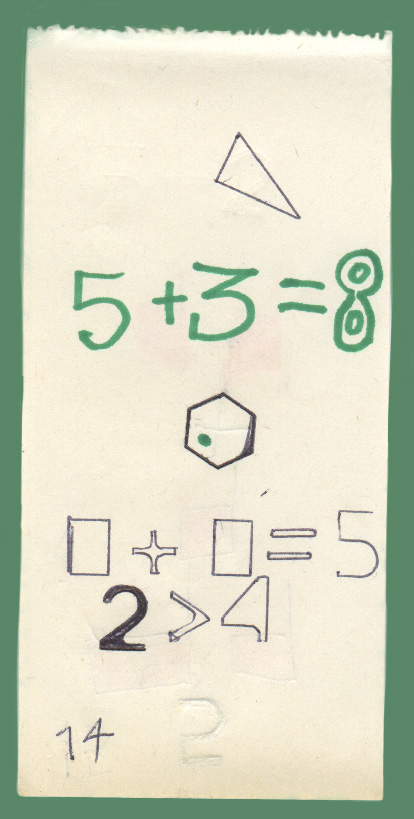 5+3=8
□ + □ = 5
2 > 4
14 2